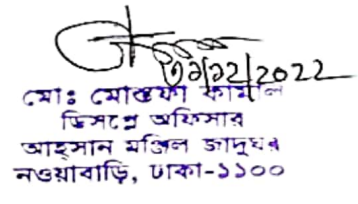 ০১/১২/2022
মোঃ মোস্তফা কামাল
ডিসপ্লে অফিসার
আহসান মঞ্জিল জাদুঘর
নওয়াবাড়ি, ঢাকা-১১০০